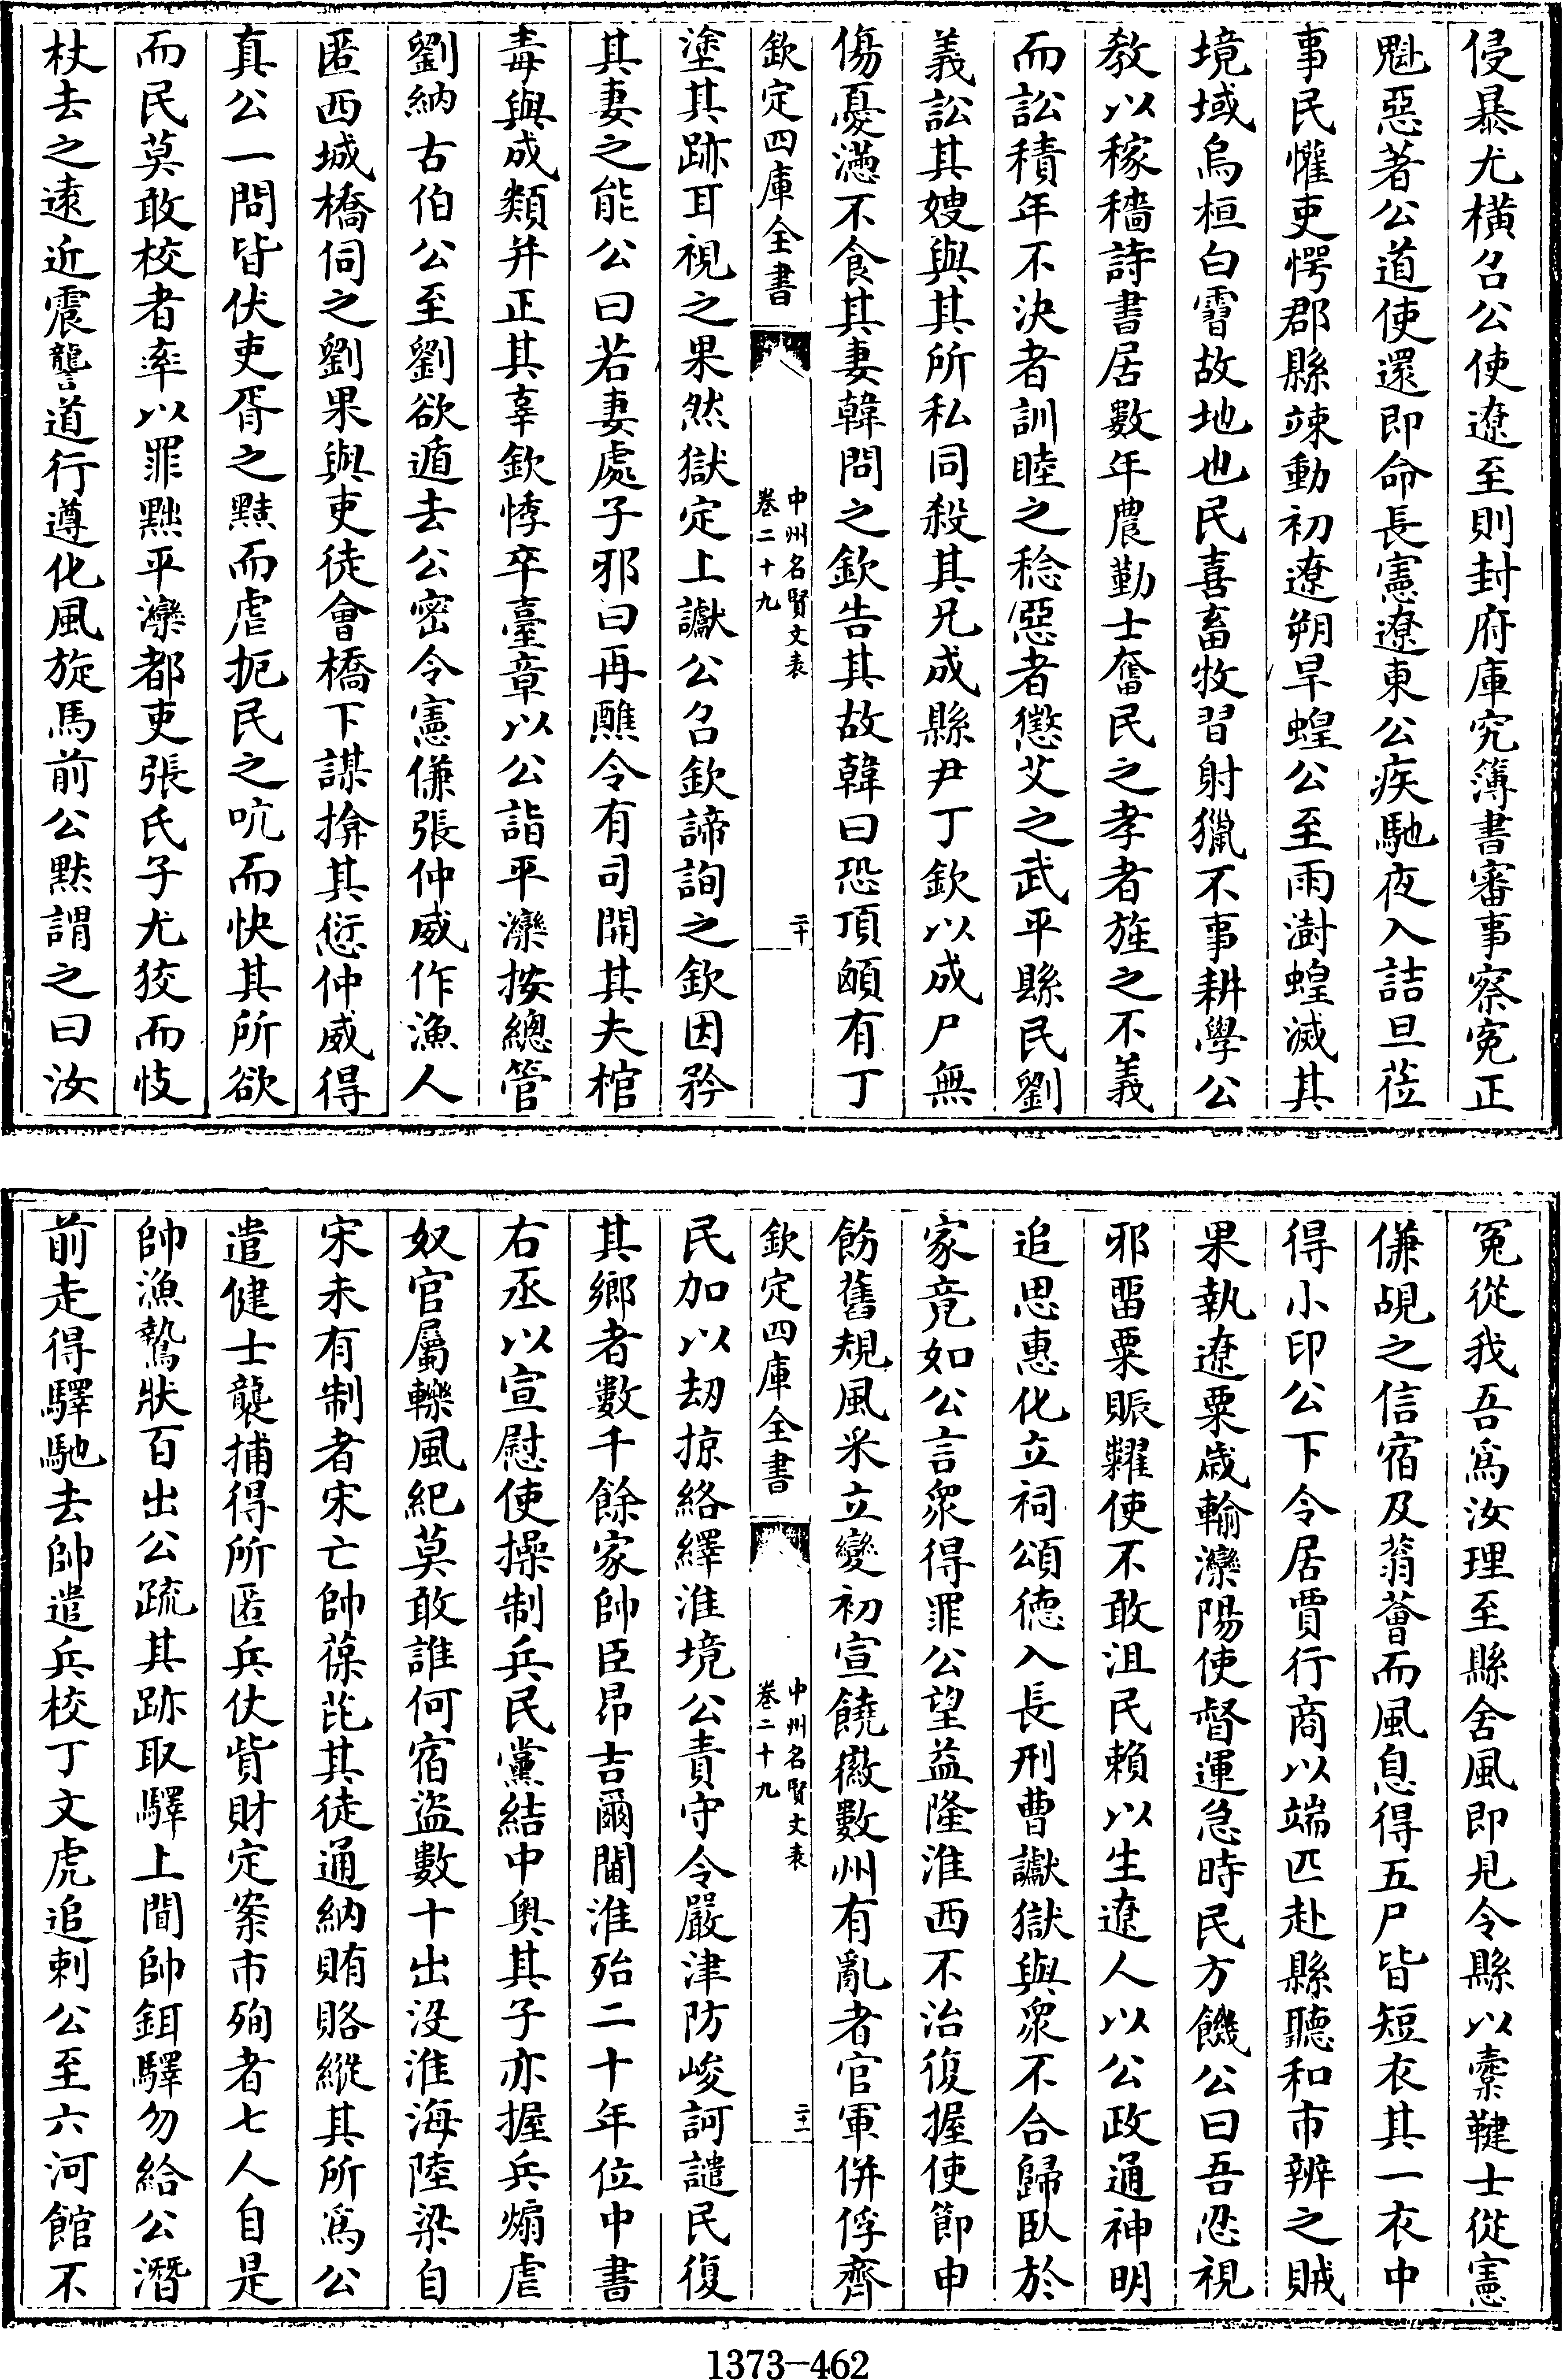 侵暴尤橫召公使遼至則封府庫究簿書審事察寃正
魁惡著公道使還即命長憲遼東公疾馳夜入詰旦莅
事民懽吏愕郡縣竦動初遼朔旱蝗公至雨澍蝗滅其
境域烏桓白霫故地也民喜畜牧習射獵不事耕學公
教以稼穡詩書居數年農勤士奮民之孝者旌之不義
而訟積年不決者訓睦之稔惡者懲艾之武平縣民劉
義訟其嫂與其所私同殺其兄成縣尹丁欽以成尸無
傷憂懣不食其妻韓問之欽告其故韓曰恐頂顖有丁
欽定四庫全書
中州名賢文表
卷二十九
二十
塗其跡耳視之果然獄定上讞公召欽諦詢之欽因矜
其妻之能公曰若妻處子邪曰再醮令有司開其夫棺
毒與成類并正其辜欽悸卒臺章以公詣平灤按總管
劉納古伯公至劉欲遁去公密令憲傔張仲威作漁人
匿西城橋伺之劉果與吏徒會橋下謀揜其愆仲威得
真公一問皆伏吏胥之黠而虐扼民之吭而快其所欲
而民莫敢校者率以罪黜平灤都吏張氏子尤狡而忮
杖去之遠近震讋道行遵化風旋馬前公默謂之曰汝
冤從我吾為汝理至縣舍風即見令縣以橐鞬士從憲
傔覘之信宿及蓊薈而風息得五尸皆短衣其一衣中
得小印公下令居賈行商以端匹赴縣聽和市辨之賊
果執遼粟歲輸灤陽使督運急時民方饑公曰吾忍視
邪畱粟賑糶使不敢沮民賴以生遼人以公政通神明
追思惠化立祠頌德入長刑曹讞獄與衆不合歸臥於
家竟如公言衆得罪公望益隆淮西不治復握使節申
飭舊規風采立變初宣饒徽數州有亂者官軍俘齊
欽定四庫全書
中州名賢文表
卷二十九
二十一
民加以刼掠絡繹淮境公責守令嚴津防峻訶譴民復
其鄉者數千餘家帥臣昂吉爾閫淮殆二十年位中書
右丞以宣慰使操制兵民黨結中奥其子亦握兵煽虐
奴官屬轢風紀莫敢誰何宿盜數十出沒淮海陸梁自
宋未有制者宋亡帥葆芘其徒通納賄賂縱其所為公
遣健士襲捕得所匿兵仗貲財定案市殉者七人自是
帥漁鷙狀百出公疏其跡取驛上聞帥鉺驛勿給公潛
前走得驛馳去帥遣兵校丁文虎追刺公至六河館不
1373-462